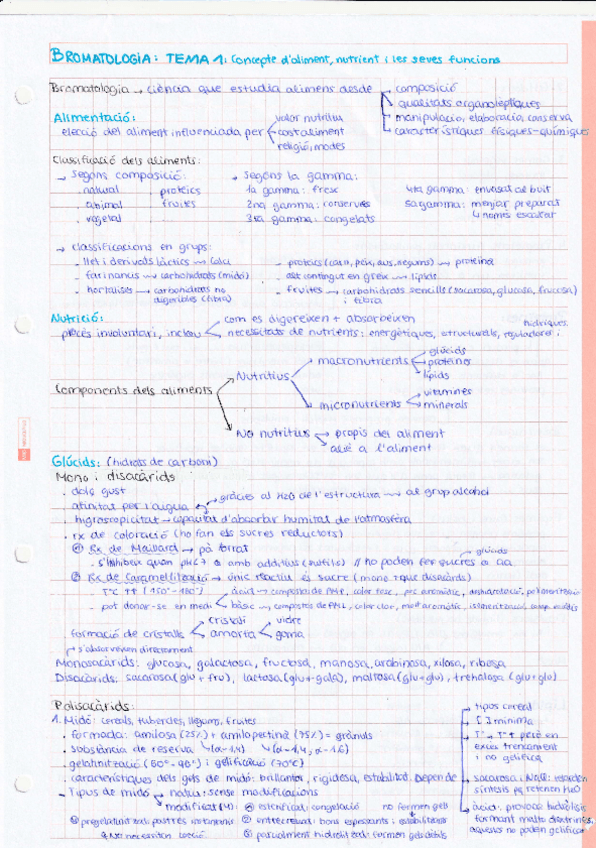 BROMATOLOGIA: TEMA 1: Concepte d'aliment, nutrient i les seves funcions
Bromatologia → ciència que estudia aliments desde composició
qualitats organolèptiques
manipulació, elaboració, conserva
característiques físiques-químiques
Alimentació:
elecció del aliment influenciada per
valor nutritiu
cost aliment
religió, modes
Classificació dels aliments:
→ Segons composició:
. natural
. animal
. vegetal
proteics
fruites
...
→ Segons la gamma:
1a gamma: fresc
2na gamma: conserves
3ra gamma: congelats
4rta gamma: envasat al buit
5a gamma: menjar preparat
només escalfar
→ Classificacions en grups:
- llet i derivats làctics → calci
- farinacis → carbohidrats (midó)
- hortalises → carbohidrats no digeribles (fibra)
- proteics (carn, peix, aus, llegums) → proteïna
- alt contingut en greix → lípids
- fruites → carbohidrats sencills (sacarosa, glucosa, fructosa) i fibra
Nutrició:
procés involuntari, inclou
com es digereixen + absorbeixen
necessitats de nutrients: energètiques, estructurals, reguladores i hídriques.
Components dels aliments
Nutritius
macronutrients
glúcids
proteïnes
lípids
micronutrients
vitamines
minerals
No nutritius
propis del aliment
aliè a l'aliment
Glúcids: (hidrats de carboni)
Mono i disacàrids
. dolç gust
. afinitat per l'aigua
gràcies al H2O de l'estructura → al grup alcohol
. higroscopicitat → capacitat d'absorbir humitat de l'atmosfera
. rx de coloració (ho fan els sucres reductors)
① Rx de Maillard → pà torrat
s'inhibeix quan pH<7 o amb additius (sulfits) // no poden fer sucres o aa
glúcids
② Rx de Caramel·lització → únic reactiu és sucre (mono. + que disacàrids)
T°C ↑↑ (150° - 180°)
pot donar-se en medi
àcid → compostos de
bàsic → compostos de
. formació de cristalls
cristalí
vidre
amorfa
goma
s'observen directament
Monosacàrids: glucosa, galactosa, fructosa, manosa, arabinosa, xilosa, ribosa
Disacàrids: sacarosa (glu + fru), lactosa (glu + gala), maltosa (glu + glu), trehalosa (glu + glu)
Polisacàrids:
1. Midó: cereals, tubercles, llegums, fruites
. formada: amilosa (25%) + amilopectina (75%) = grànuls
. substància de reserva
(α-1,4)
(α-1,4; α-1,6)
. gelatinització (60°-90°) i gelificació (70°C)
. característiques dels gels de midó: brillantor, rigidesa, estabilitat. Depende
tipus cereal
[ ] mínima
T° → T° ↑ però en excés trencament i no gelifica
sacarosa i NaCl:
síntesis pq retenen H2O
àcid: provoca hidròlisis
formant malto dextrines,
aquestes no poden gelificar
- Tipus de midó
natiu: sense modificacions
modificat (4):
① esterificat: congelació no formen gels
② entrecreuat: bons espessants i estabilitzants
③ parcialment hidrolitzat: formen gels dèbils
④ pregelatinitzat: postres instantanis
No necessiten cocció